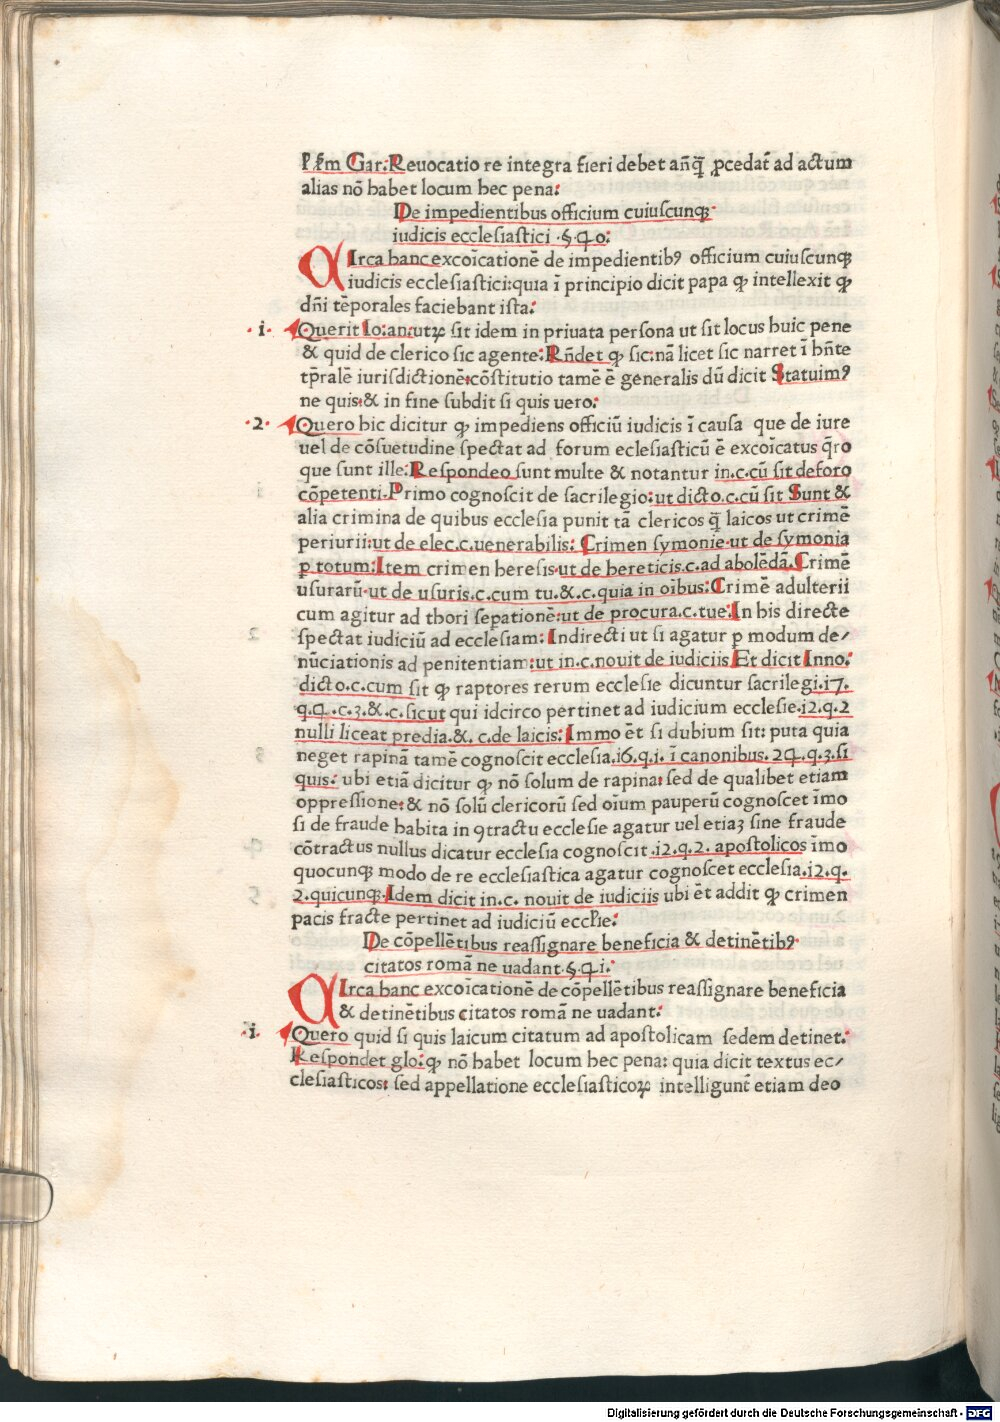 Gar: Reuocatio re integra fieri debet añq̄ ꝓcedat̄ ad actum
alias nō habet locum hec pena:
De impedientibus officium cuiuscunqꝫ
iudicis ecclesiastici .§.40:
CIrca hanc excoīcationē de impedientibꝰ officium cuiuscunqꝫ
iudicis ecclesiastici: quia ī principio dicit papa ꝙ intellexit ꝙ
dñi tēporales faciebant ista:
.1. Querit Io: an: utꝝ sit idem in priuata persona ut sit locus huic pene
& quid de clerico sic agente: Rñdet ꝙ sic: nā licet sic narret ī hñte
tp̄ralē iurisdictionē: cōstitutio tamē ē generalis dū dicit Statuimꝰ
ne quis: & in fine subdit si quis uero:
.2. Quero hic dicitur ꝙ impediens officiū iudicis ī causa que de iure
uel de cōsuetudine spectat ad forum eclesiasticū ē excoīcatus q̄ro
que sunt ille: Respondeo sunt multe & notantur in.c.cū sit de foro
cōpetenti. Primo cognoscit de sacrilegio: ut dicto.c.cū sit Sunt &
alia crimina de quibus ecclesia punit tā clericos q̄ laicos ut crimē
periurii: ut de elec.c.uenerabilis: Crimen symonie. ut de symonia
ꝑ totum: Item crimen heresis. ut de hereticis.c.ad abolēdā. Crimē
usurarū. ut de usuris.c.cum tu.&.c.quia in oībus: Crimē adulterii
cum agitur ad thori sepationē: ut de procura.c.tue: In his directe
spectat iudiciū ad ecclesiam: Indirecti ut si agatur ꝑ modum de/
nūciationis ad penitentiam: ut in.c.nouit de iudiciis Et dicit Inno:
dicto.c.cum sit ꝙ raptores rerum ecclesie dicuntur sacrilegi.17.
q.4.c.3.&.c.sicut qui idcirco pertinet ad iudicium ecclesie.12.q.2
nulli liceat predia.&. c.de laicis: Immo ēt si dubium sit: puta quia
neget rapinā tamē cognoscit ecclesia.16.q.1. ī canonibus. 24.q.3.si
quis: ubi etiā dicitur ꝙ nō solum de rapina: sed de qualibet etiam
oppressione: & nō solū clericorū sed oīum pauperū cognoscet īmo
si de fraude habita in ꝯtractu ecclesie agatur uel etiaꝫ sine fraude
cōtractus nullus dicatur ecclesia cognoscit .12.q.2. apostolicos īmo
quocunqꝫ modo de re ecclesiastica agatur cognoscet ecclesia.12.q.
2.quicunqꝫ. Idem dicit in.c. nouit de iudiciis ubi ēt addit ꝙ crimen
pacis fracte pertinet ad iudiciū eccl̄ie:
De cōpellētibus reassignare beneficia & detinētibꝰ
citatos romā ne uadant.§.41.
CIrca hanc excoīcationē de cōpellētibus reassignare beneficia
& detinētibus citatos romā ne uadant:
.1. Quero quid si quis laicum citatum ad apostolicam sedem detinet:
Respondet glo: ꝙ nō habet locum hec pena: quia dicit textus ec/
clesiasticos: sed appellatione ecclesiasticoꝝ intelligunt̄ etiam deo
Digitalisierung gefördert durch die Deutsche Forschungsgemeinschaft - DFG